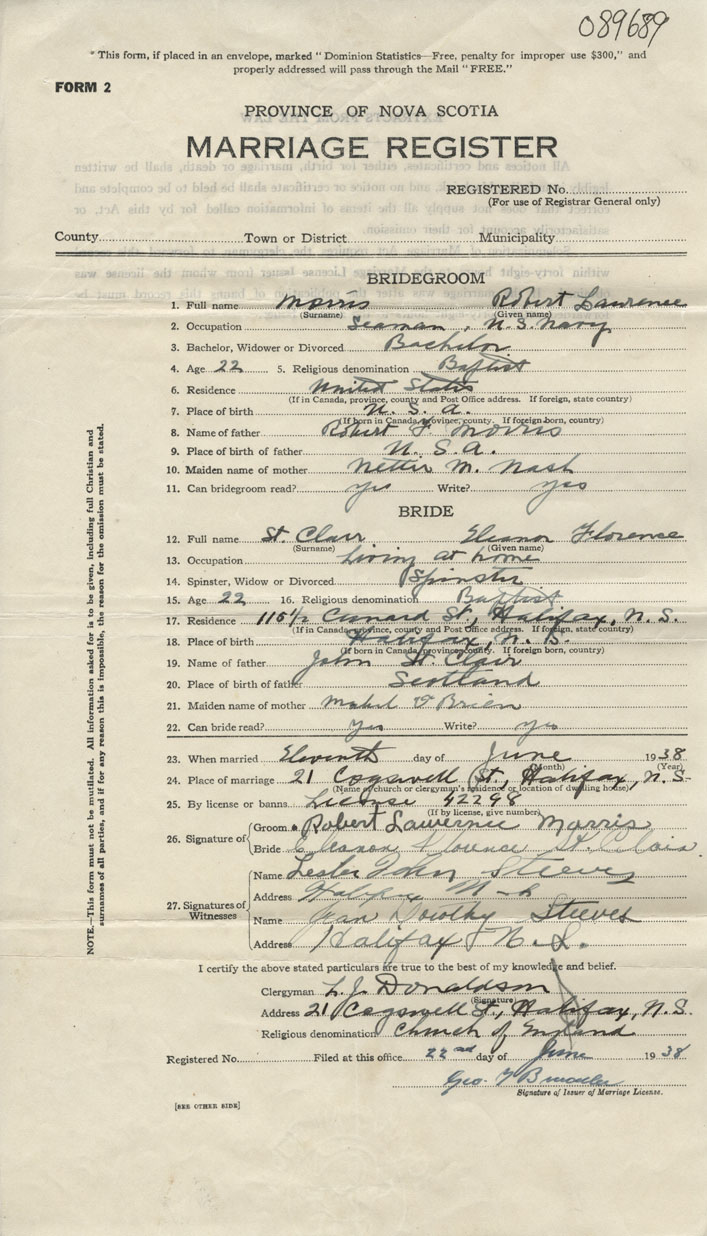 089689
* This form, if placed in an envelope, marked " Dominion Statistics—Free, penalty for improper use $300," and
properly addressed will pass through the Mail " FREE."
FORM 2
PROVINCE OF NOVA SCOTIA
MARRIAGE REGISTER
REGISTERED No.
(For use of Registrar General only)
County Town or District Municipality
BRIDEGROOM
1. Full name Morris Robert Lawrence
(Surname) (Given name)
2. Occupation Seaman, U.S. Navy
3. Bachelor, Widower or Divorced Bachelor
4. Age 22 5. Religious denomination Baptist
6. Residence United States
(If in Canada, province, county and Post Office address. If foreign, state country)
7. Place of birth U. S. A.
(If born in Canada, province, county. If foreign born, country)
8. Name of father Robert F. Morris
9. Place of birth of father U. S. A.
10. Maiden name of mother Nettie M. Nash
11. Can bridegroom read? yes Write? yes
BRIDE
12. Full name St. Clair Eleanor Florence
(Surname) (Given name)
13. Occupation Living at home
14. Spinster, Widow or Divorced Spinster
15. Age 22 16. Religious denomination Baptist
17. Residence 116½ Cunard St., Halifax, N. S.
(If in Canada, province, county and Post Office address. If foreign, state country)
18. Place of birth Halifax, N. S.
(If born in Canada, province, county. If foreign born, country)
19. Name of father John St. Clair
20. Place of birth of father Scotland
21. Maiden name of mother Mabel O'Brien
22. Can bride read? Yes Write? yes
23. When married Eleventh day of June 1938
(Month) (Year)
24. Place of marriage 21 Cogswell St., Halifax, N.S.
(Name of church or clergyman's residence or location of dwelling house)
25. By license or banns License 42298
(If by license, give number)
26. Signature of Groom Robert Lawrence Morris
Bride Eleanor Florence St. Clair
27. Signatures of Witnesses Name Lester John Steeves
Address Halifax N-S
Name Jean Dorothy Steeves
Address Halifax N. S.
I certify the above stated particulars are true to the best of my knowledge and belief.
Clergyman L. J. Donaldson
(Signature)
Address 21 Cogswell St., Halifax, N.S.
Religious denomination Church of England
Registered No. Filed at this office 22nd day of June 1938
Geo.
Signature of Issuer of Marriage License.
[SEE OTHER SIDE]
NOTE.—This form must not be mutilated. All information asked for is to be given, including full Christian and
surnames of all parties, and if for any reason this is impossible, the reason for the omission must be stated.